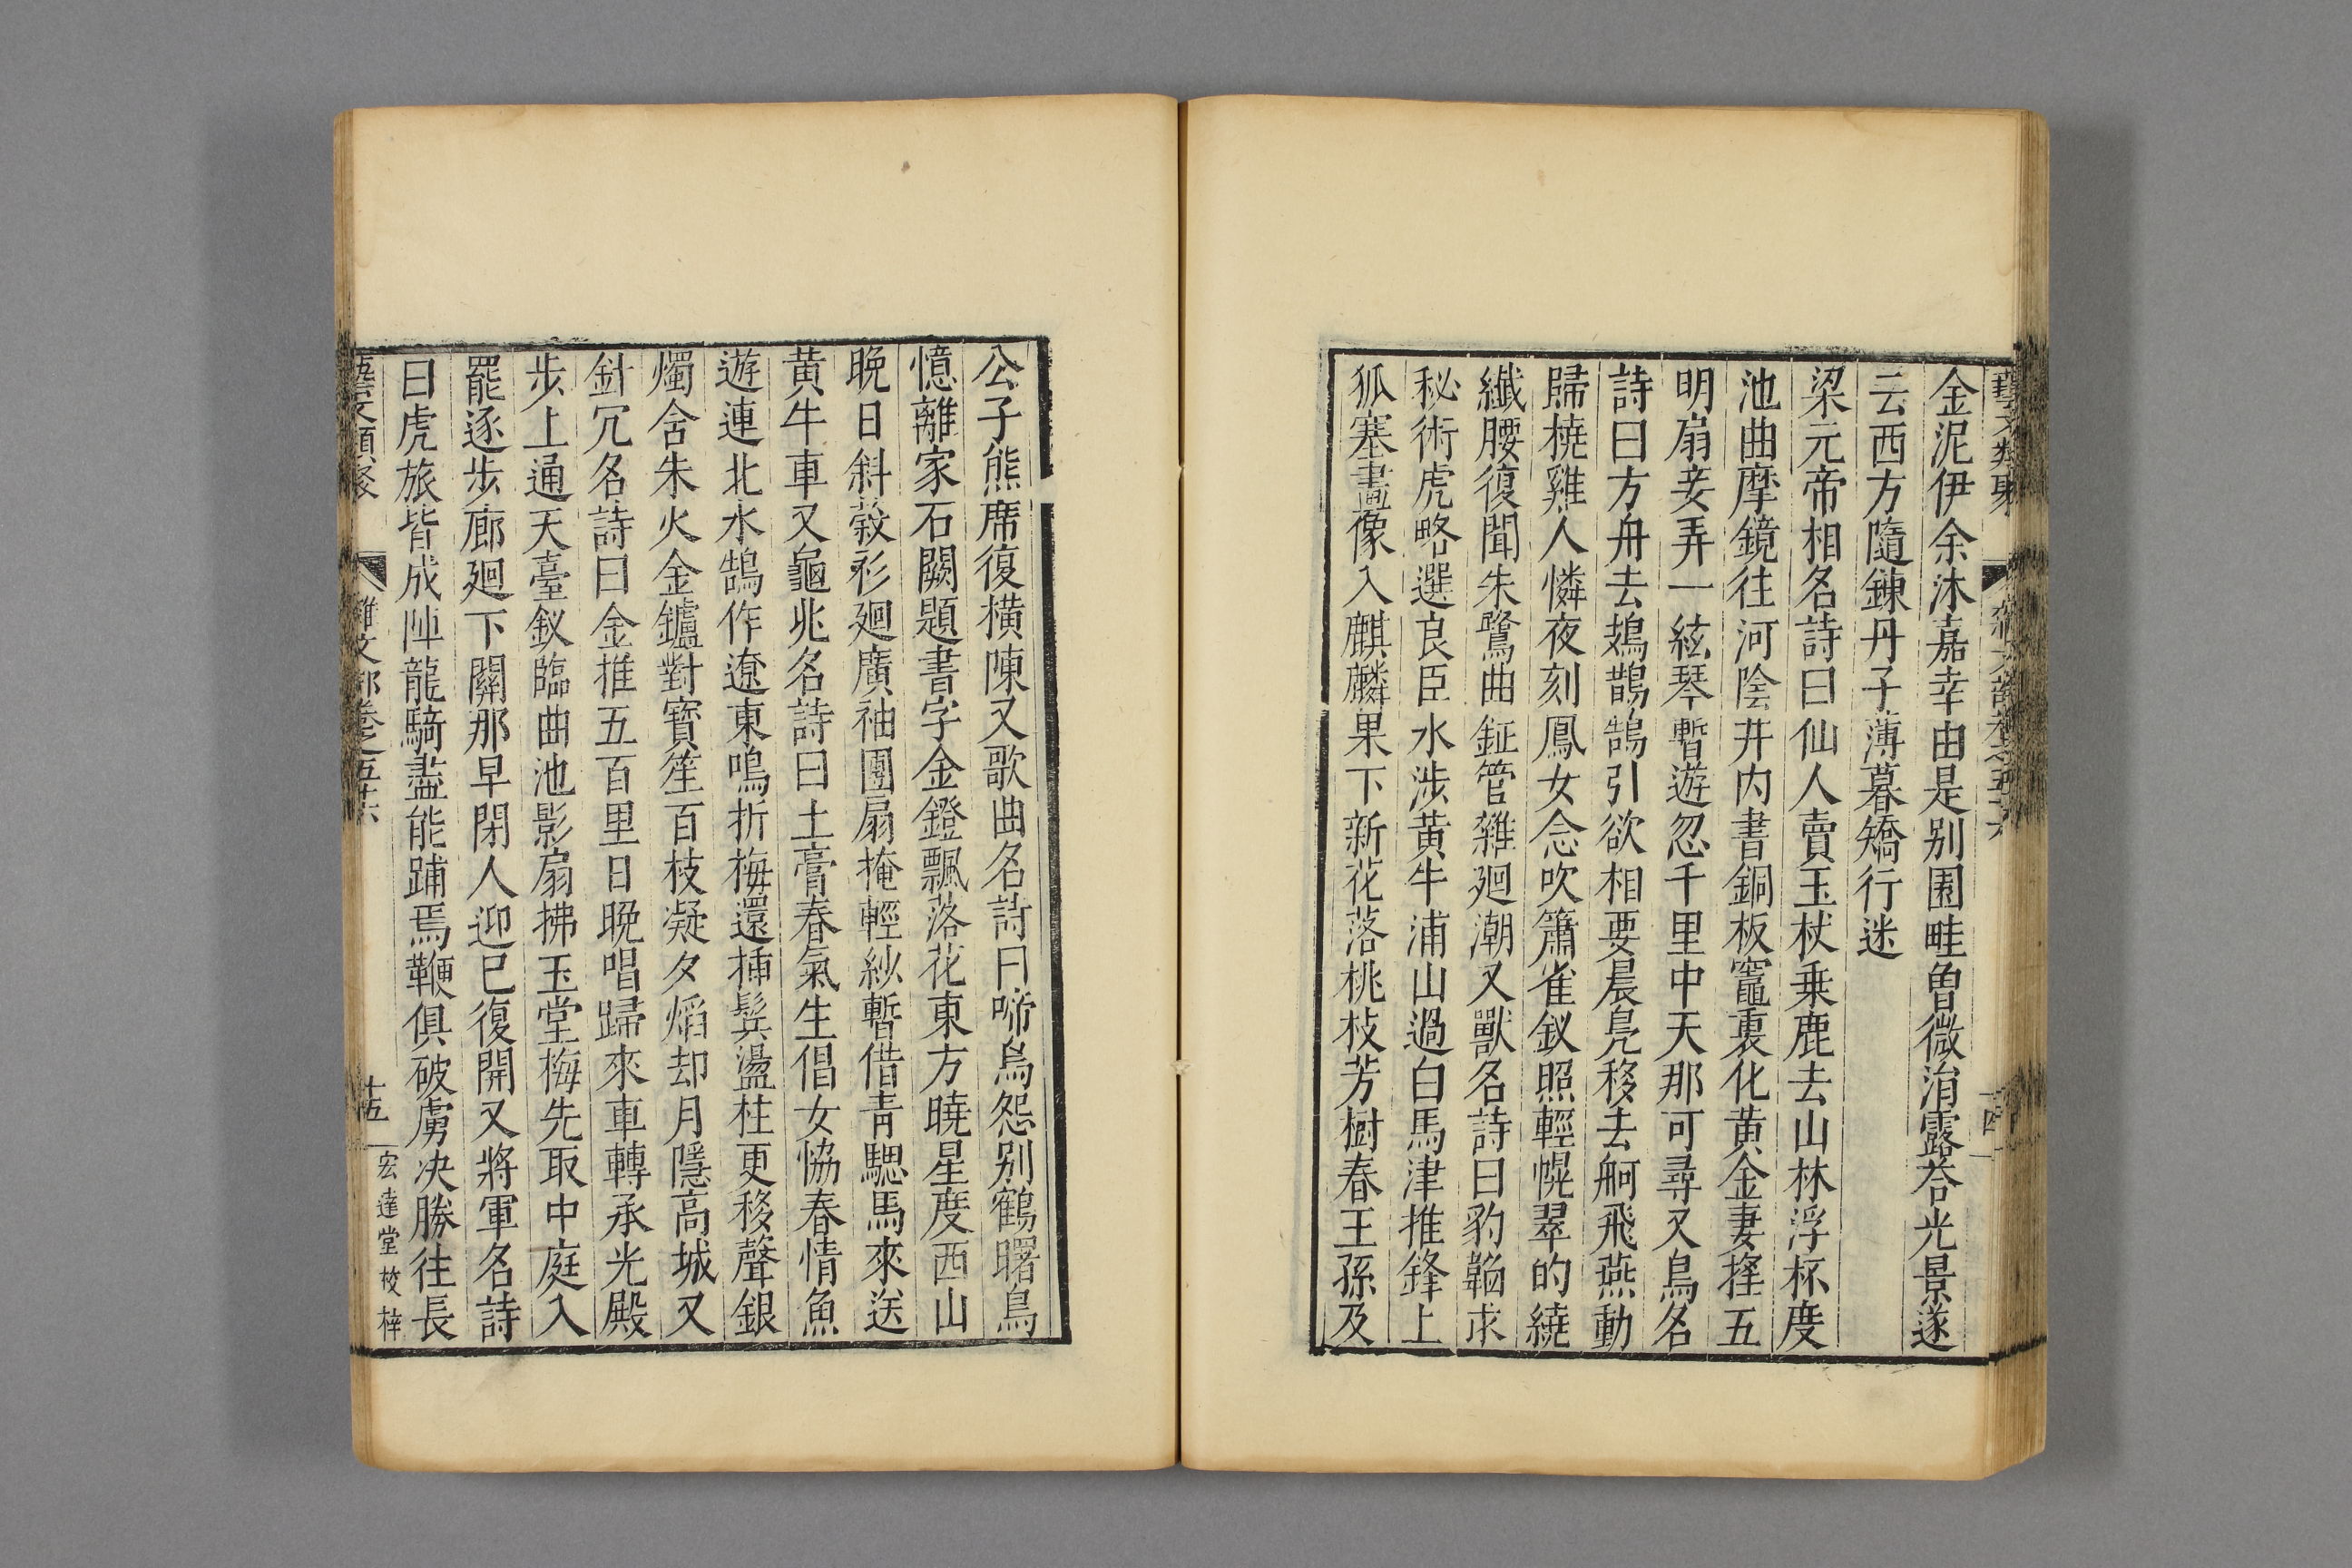 藝文類聚 雜文部卷之五十六 十四
金泥伊余沐嘉幸由是别園畦魯微涓露荅光景遂
云西方隨鍊丹子薄暮矯行迷
梁元帝相名詩曰仙人賣玉杖乗鹿去山林浮杯度
池曲摩鏡往河陰井内書銅板竈裏化黄金妻搖五
明扇妾弄一絃琴暫遊忽千里中天那可尋又鳥名
詩曰方舟去鳷鵲鵠引欲相要晨鳧移去舸飛燕動
歸橈雞人憐夜刻鳳女念吹簫雀釵照輕幌翠的繞
纖腰復聞朱鷺曲鉦管雜廻潮又獸名詩曰豹韜求
秘術虎略選良臣水涉黄牛浦山過白馬津推鋒上
狐塞畫像入麒麟果下新花落桃枝芳樹春王孫及
公子熊席復横陳又歌曲名詩曰啼烏怨别鶴曙鳥
憶離家石闕題書字金鐙飄落花東方曉星度西山
晩日斜縠衫廻廣袖團扇掩輕紗暫借青驄馬來送
黄牛車又龜兆名詩曰土膏春氣生倡女恊春情魚
遊連北水鵠作遼東鳴折梅還插鬂盪柱更移聲銀
燭含朱火金鑪對寳笙百枝凝夕熖却月隱高城又
針冗名詩曰金推五百里日晩唱歸來車轉承光殿
步上通天臺釵臨曲池影扇拂玉堂梅先取中庭入
罷逐步廊廻下關那早閉人迎已復開又將軍名詩
曰虎旅皆成陣龍騎盡能踊焉鞭俱破虜决勝往長
藝文類聚 雜文部卷之五十六 十五 宏達堂校梓